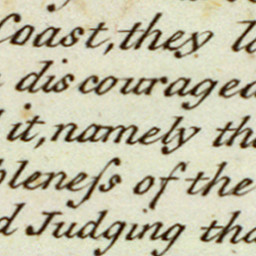 Coast, they
discouraged
it, namely
bleneſs of the
Judging